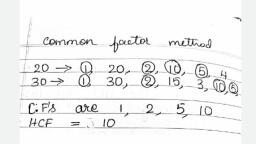 common factor method
20 → 1, 20, 2, 10, 5, 4
30 → 1, 30, 2, 15, 3, 10, 5,
C.F's are 1, 2, 5, 10
HCF = 10